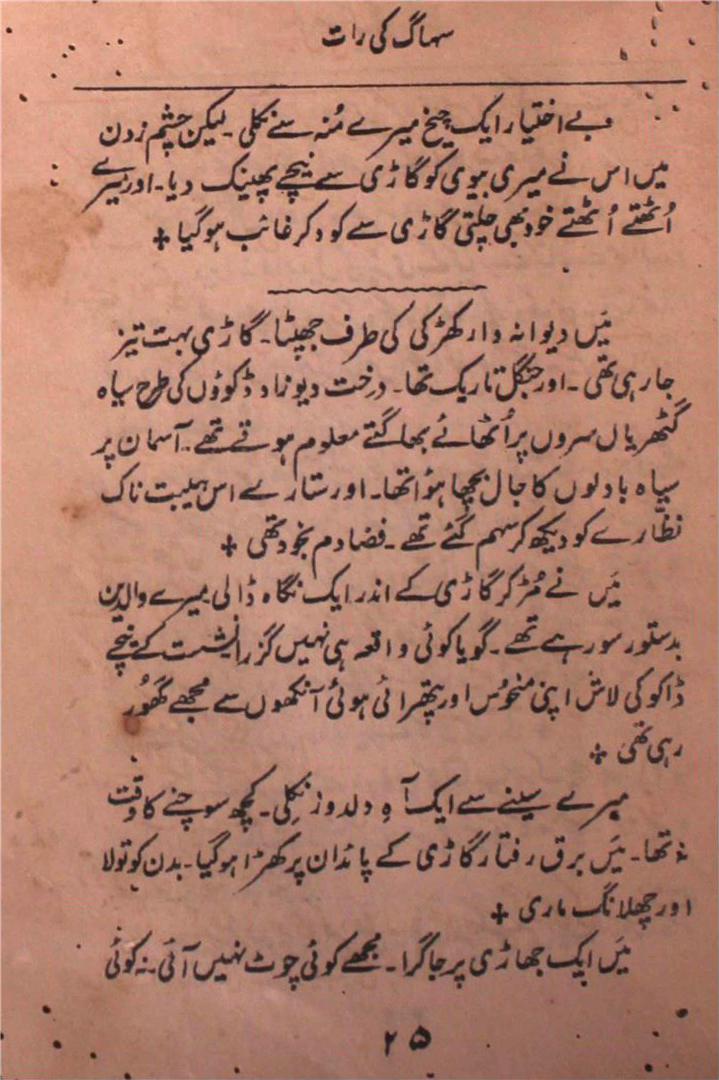 سہاگ کی رات
بے اختیار ایک چیخ میرے مُنہ سے نکلی۔ لیکن چشم زدن
میں اس نے میری بیوی کو گاڑی سے نیچے پھینک دیا۔ اور میرے
اُٹھتے اُٹھتے خود بھی چلتی گاڑی سے کود کر غائب ہوگیا +
مَیں دیوانہ وار کھڑکی کی طرف جھپٹا۔ گاڑی بہت تیز
جا رہی تھی۔ اور جنگل تاریک تھا۔ درخت دیوزاد ڈکوؤں کی طرح سیاہ
گٹھریاں سروں پر اُٹھائے بھاگتے معلوم ہوتے تھے۔ آسمان پر
سیاہ بادلوں کا جال بچھا ہوٴا تھا۔ اور ستارے اس ہیبت ناک
نظّارے کو دیکھ کر سہم گئے تھے۔ فضا دم بخود تھی +
مَیں نے مُڑ کر گاڑی کے اندر ایک نگاہ ڈالی میرے والدین
بدستور سو رہے تھے۔ گویا کوئی واقعہ ہی نہیں گزرا نشست کے نیچے
ڈاکو کی لاش اپنی منحُوس اور پتھرائی ہوئی آنکھوں سے مجھے گھُور
رہی تھی +
میرے سینے سے ایک آہِ دلدوز نِکلی۔ کچھ سوچنے کا وقت
نہ تھا۔ مَیں برق رفتار گاڑی کے پائدان پر کھڑا ہوگیا۔ بدن کو تولا
اور چھلانگ ماری +
مَیں ایک جھاڑی پر جا گرا۔ مجھے کوئی چوٹ نہیں آئی۔ نہ کوئی
۲۵